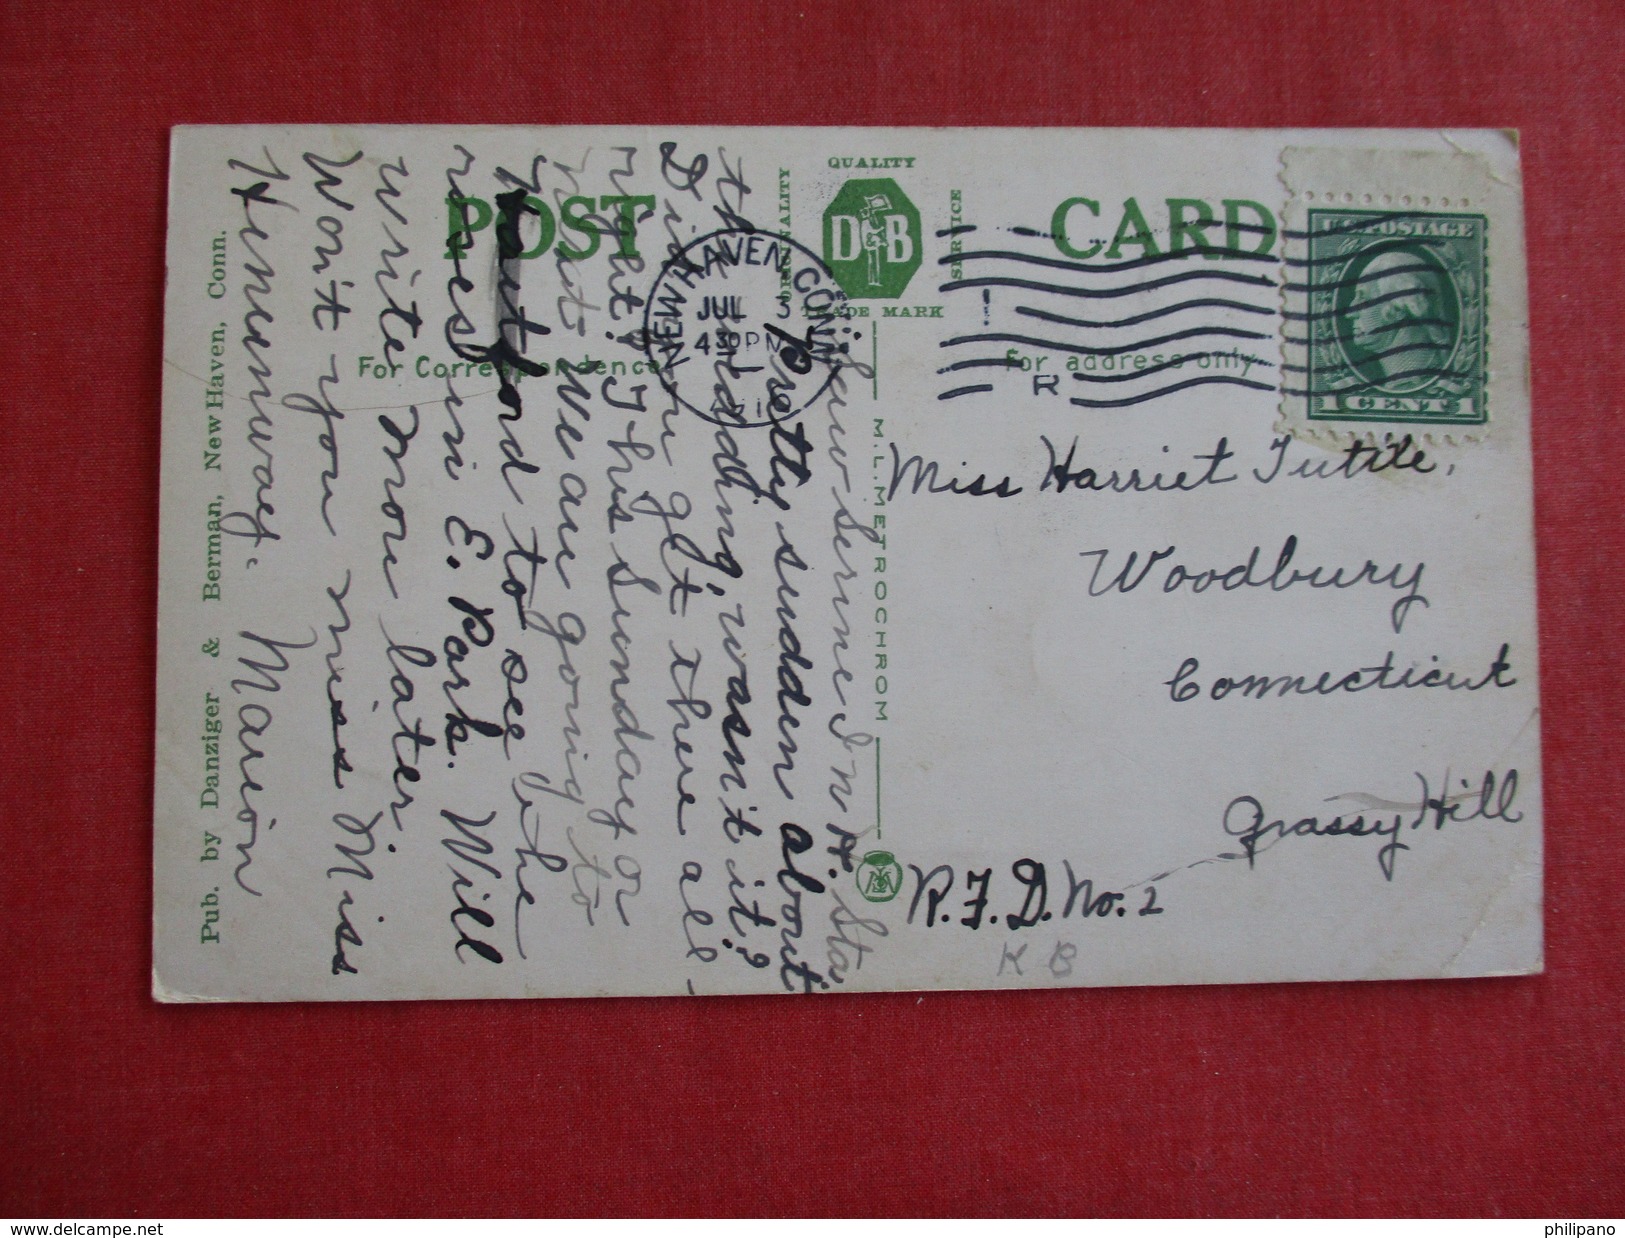 QUALITY
ORIGINALITY
SERVICE
D B
TRADE MARK
POST CARD
For Correspondence
For address only
NEW HAVEN, CONN.
JUL 3
4 30 PM
1
R
U.S. POSTAGE
1 CENT 1
Pub. by Danziger & Berman, New Haven, Conn.
M. L. METROCHROM
I saw Sernie I in H. Sta
Pretty sudden about
the wedding, wasn't it?
Did you get there all-
right? This Sunday or
next we are going to
Hartford to see the
roses in E. Park. Will
write more later.
Won't you miss Miss
Hemunway. Marion
Miss Harriet Tuttle,
Woodbury
Connecticut
Grassy Hill
R.F.D. No. 2
K B
philipano